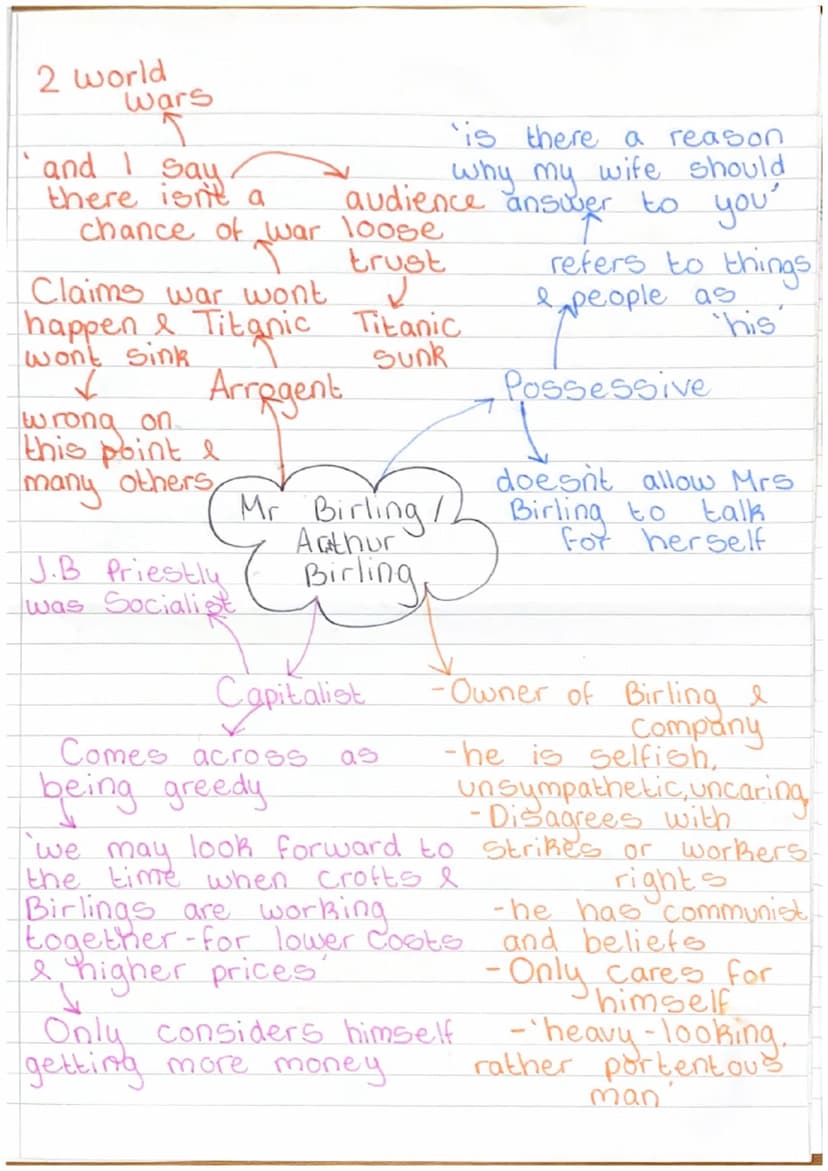 2 world
wars
'and I say
there isn't a
chance of war
audience
loose
trust
Titanic
sunk
Claims war wont
happen & Titanic
wont sink
wrong on
this point &
many others
Arrogent
'is there a reason
why my wife should
answer to you'
refers to things
& people as
'his'
Possessive
doesn't allow Mrs
Birling to talk
for herself
Mr Birling/
Arthur
Birling
J.B Priestly
was Socialist
Capitalist
Comes across as
being greedy
'we may look forward to
the time when Crofts &
Birlings are working
together-for lower costs
& higher prices'
Only considers himself
getting more money
-Owner of Birling &
Company
-he is selfish,
unsympathetic, uncaring
-Disagrees with
strikes or workers
rights
-he has communist
and beliefs
-Only cares for
himself
-'heavy-looking,
rather portentous
man'